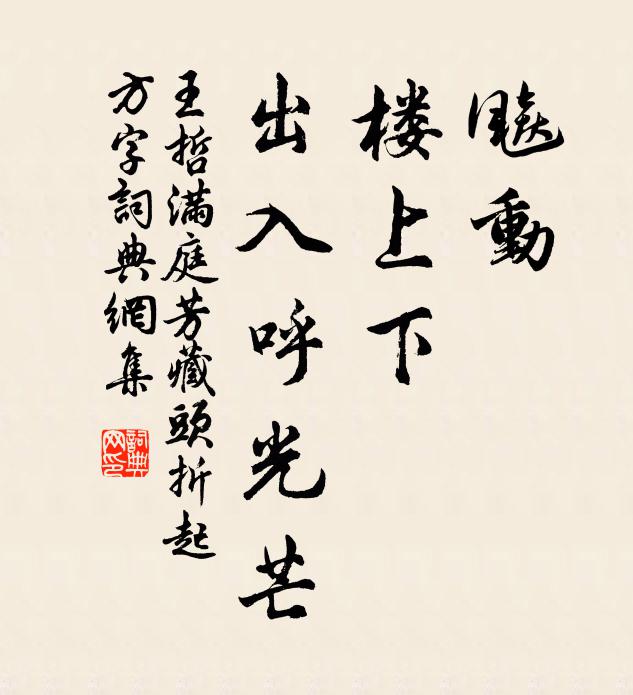 飚動
楼上下
出入呼光芒
王哲滿庭芳藏頭折起
方字詞典網集
詞典网印